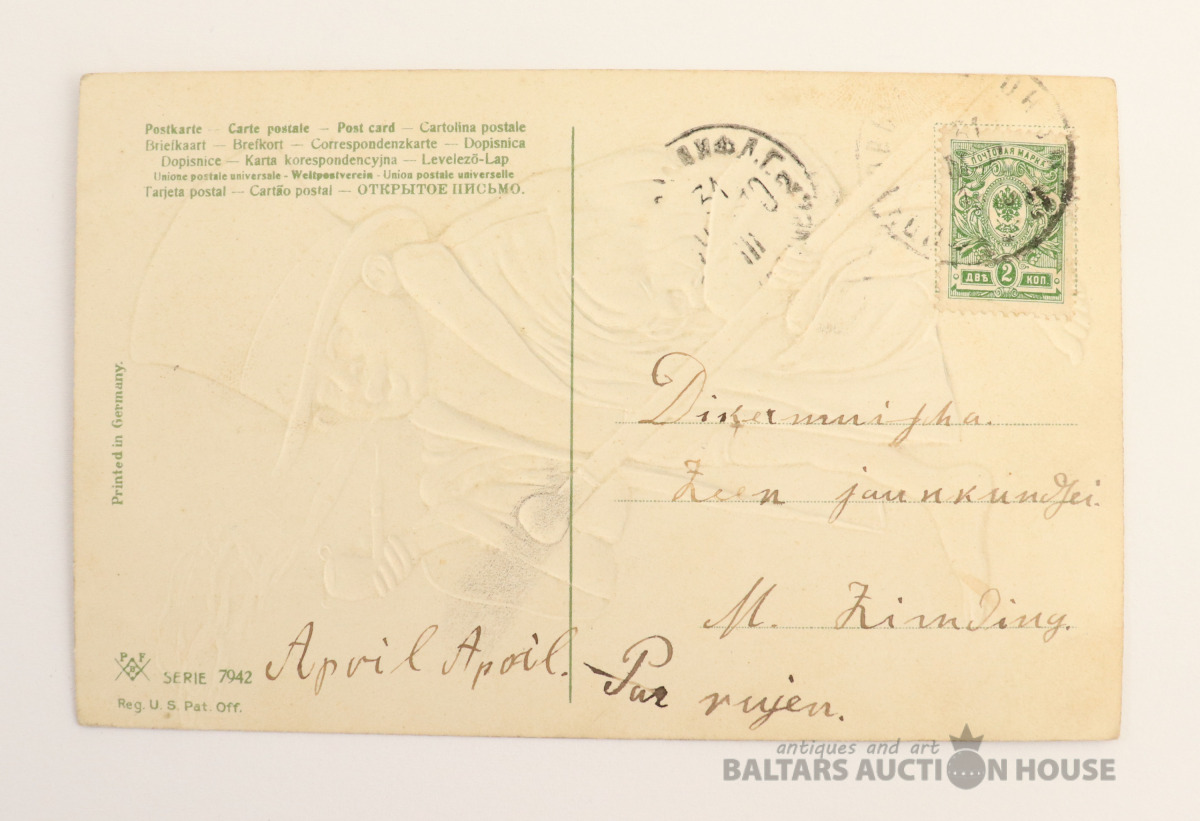 Postkarte — Carte postale — Post card — Cartolina postale
Briefkaart — Brefkort — Correspondenzkarte — Dopisnica
Dopisnice — Karta korespondencyjna — Levelező-Lap
Unione postale universale - Weltpostverein - Union postale universelle
Tarjeta postal — Cartão postal — ОТКРЫТОЕ ПИСЬМО.
31
10
III
ПОЧТОВАЯ МАРКА
ДВѢ 2 КОП.
Printed in Germany.
Zeen jaunkundzei.
M. Zimding.
April April.
Par rujen.
P F B
SERIE 7942
Reg. U. S. Pat. Off.
antiques and art
BALTARS AUCTION HOUSE